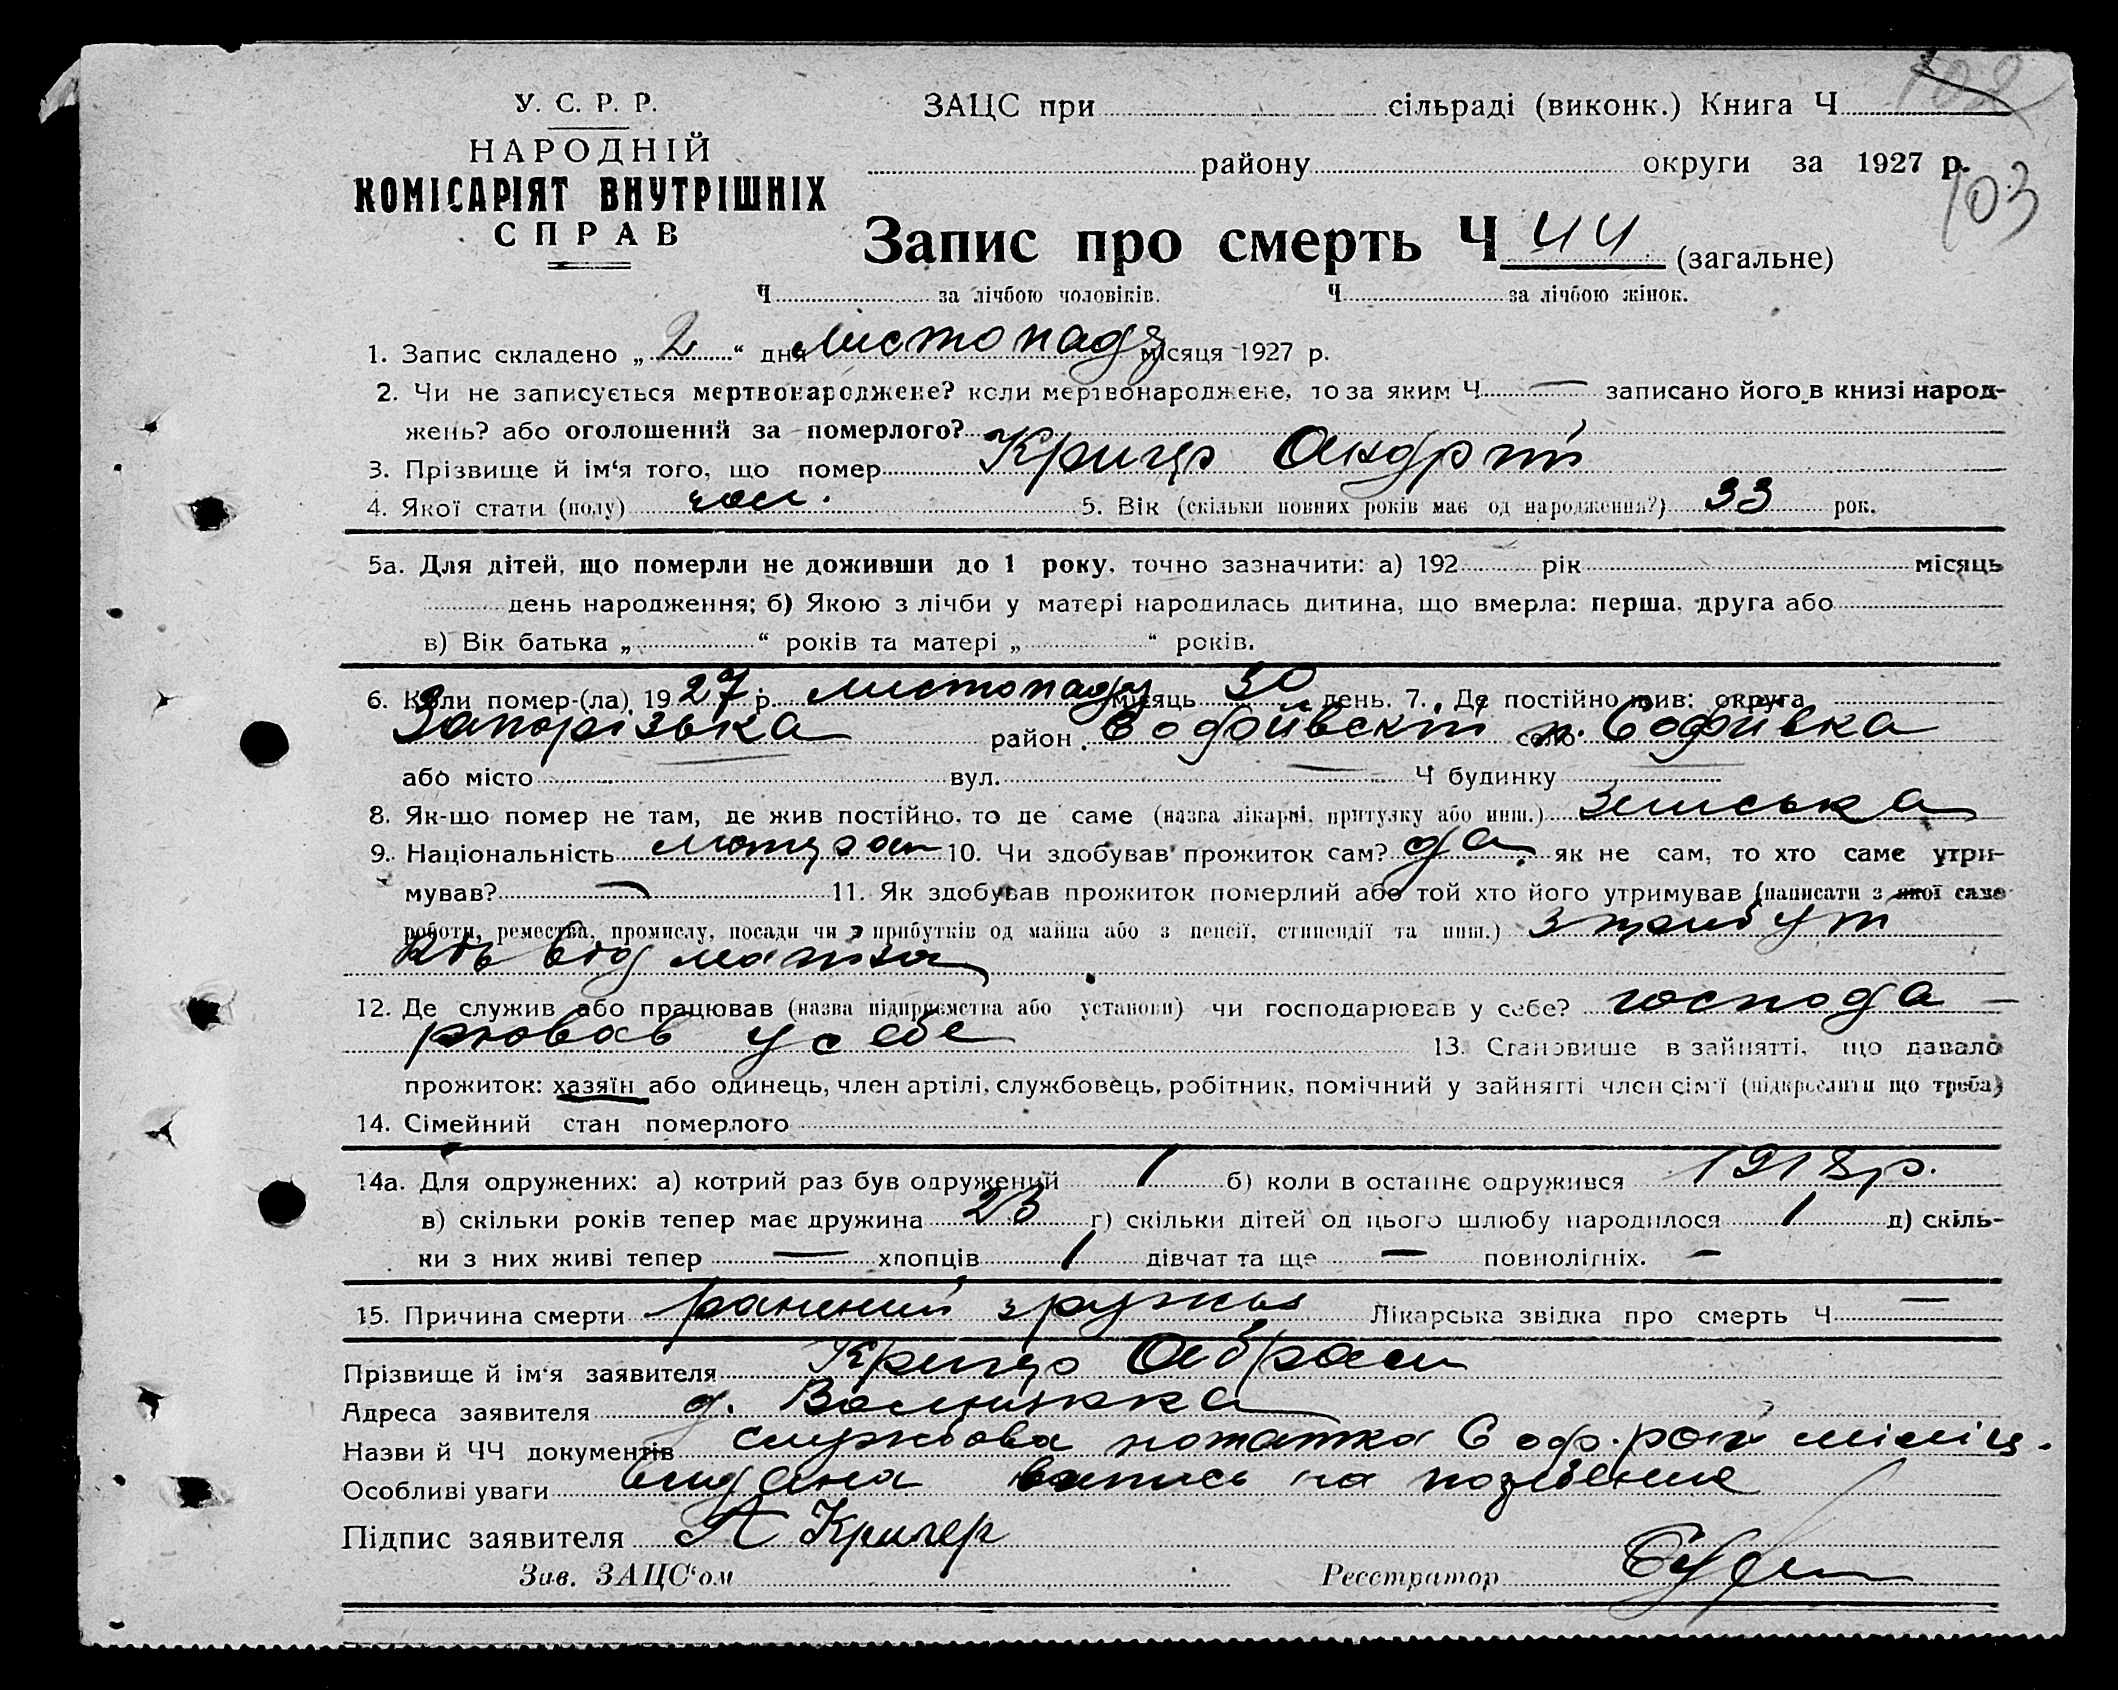 У. С. Р. Р.
НАРОДНІЙ
КОМІСАРІЯТ ВНУТРІШНІХ
СПРАВ
ЗАЦС при сільраді (виконк.) Книга Ч
району округи за 1927 р.
103
Запис про смерть Ч 44 (загальне)
Ч за лічбою чоловіків. Ч за лічбою жінок.
1. Запис складено „ 2 “ дня листопаду місяця 1927 р.
2. Чи не записується мертвонароджене? коли мертвонароджене, то за яким Ч — записано його в книзі народ-
жень? або оголошений за померлого?
3. Прізвище й ім‘я того, що помер Андрій
4. Якої стати (полу) чол. 5. Вік (скільки повних років має од народження?) 33 рок.
5а. Для дітей, що померли не доживши до 1 року, точно зазначити: а) 192 рік місяць
день народження; б) Якою з лічби у матері народилась дитина, що вмерла: перша, друга або
в) Вік батька „ “ років та матері „ “ років.
6. Коли помер-(ла) 1927 р. листопаду місяць 30 день. 7. Де постійно жив: округа
Запорізька район Софіївскій село Софіївка
або місто вул. — Ч будинку
8. Як-що помер не там, де жив постійно, то де саме (назва лікарні, притулку або инш.)
9. Національність 10. Чи здобував прожиток сам? да як не сам, то хто саме утри-
мував? — 11. Як здобував прожиток померлий або той хто його утримував (написати з якої саме
роботи, ремества, промислу, посади чи з прибутків од майна або з пенсії, стипендії та инш.) з прибут
ків від
12. Де служив або працював (назва підприємства або установи) чи господарював у себе? господа
рював у себе 13. Становище в зайнятті, що давало
прожиток: хазяїн або одинець, член артілі, службовець, робітник, помічний у зайнятті член сім‘ї (підкреслити що треба)
14. Сімейний стан померлого
14а. Для одружених: а) котрий раз був одружений 1 б) коли в останнє одружився 1918 р.
в) скільки років тепер має дружина 23 г) скільки дітей од цього шлюбу народилося 1 д) скіль-
ки з них живі тепер — хлопців 1 дівчат та ще — повнолітніх. —
15. Причина смерти ранений з ружья Лікарська звідка про смерть Ч —
Прізвище й ім‘я заявителя Абрам
Адреса заявителя
Назви й ЧЧ документів службова нотатка Соф. рай міліц.
Особливі уваги видана випись на
Підпис заявителя А Кригер
Зав. ЗАЦС‘ом Реєстратор